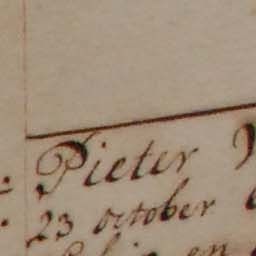 Pieter
23 october
en